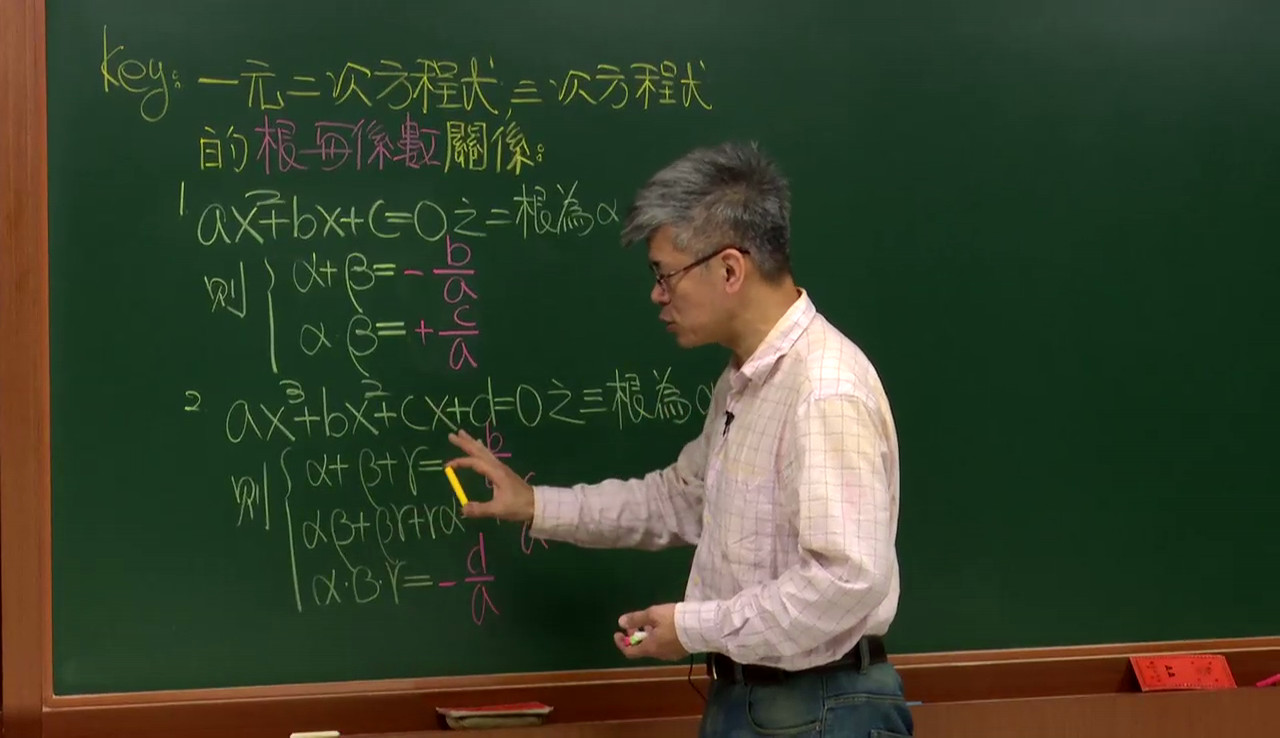 Key: 一元二次方程式, 三次方程式
的根與係數關係:
1. ax²+bx+c=0之二根為α
則 { α+β=-b/a
α·β=+c/a
2. ax³+bx²+cx+d=0之三根為α
則 { α+β+γ= b
αβ+βγ+γα
α·β·γ=-d/a